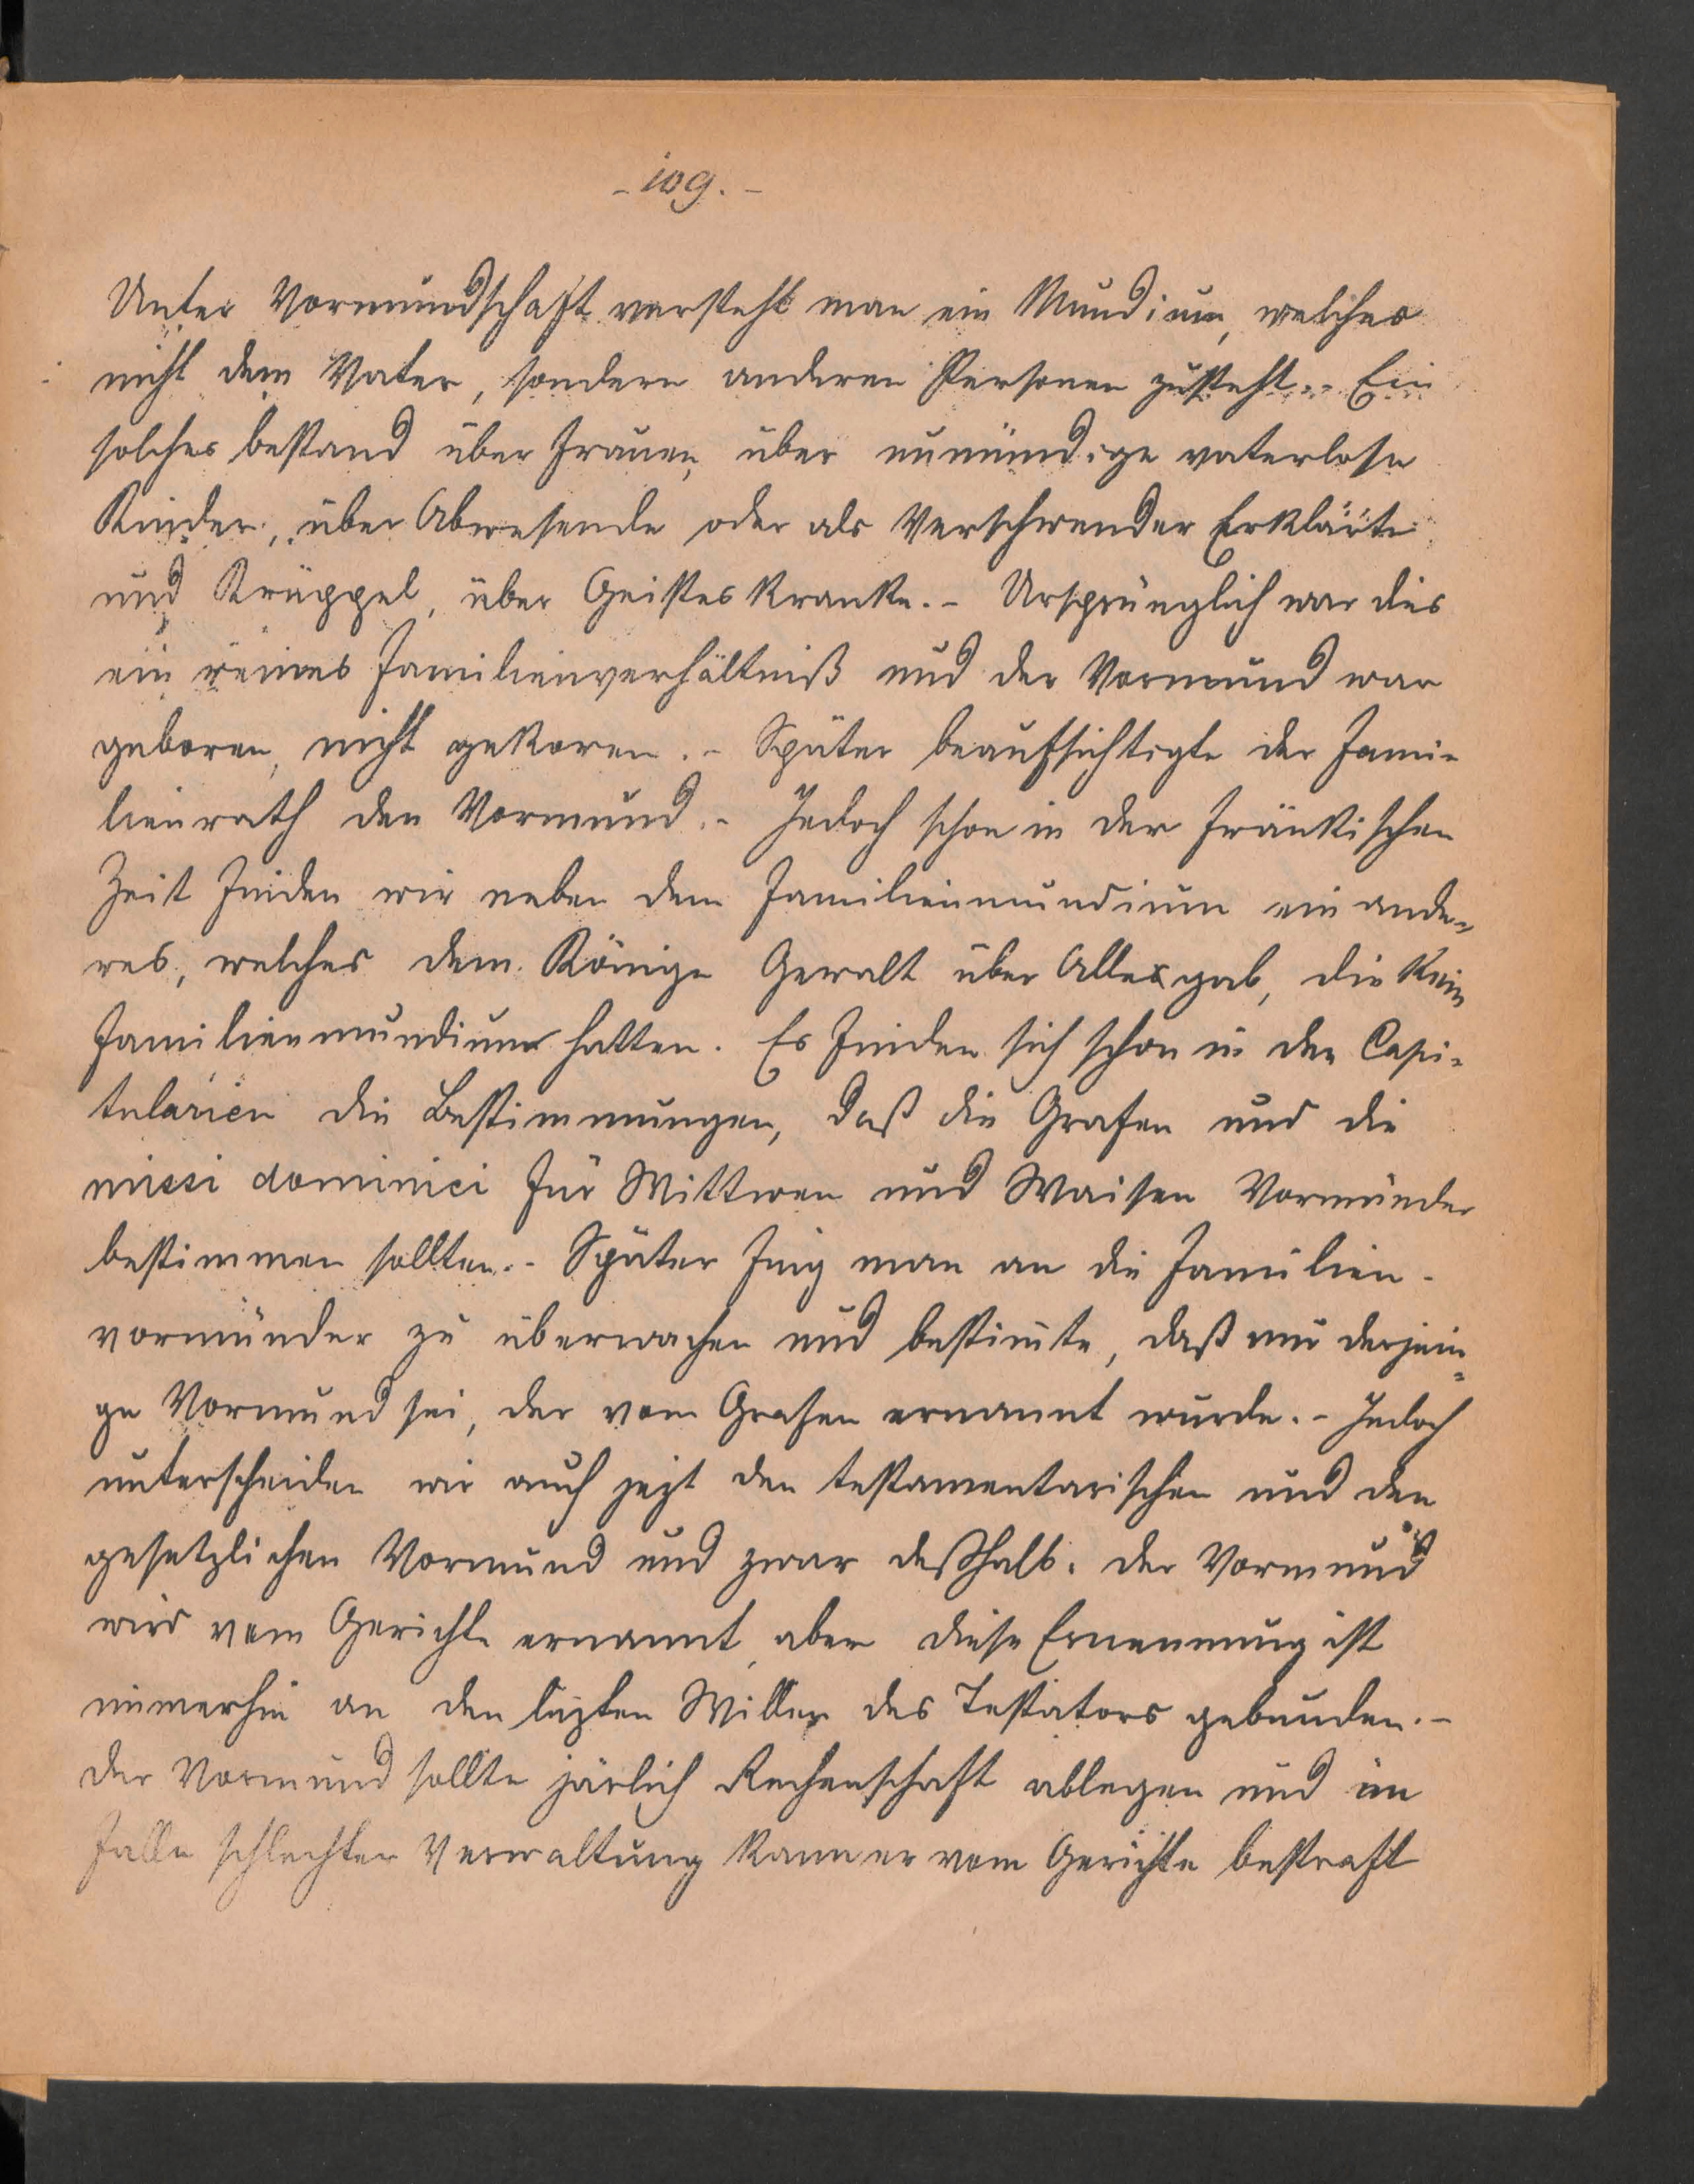 - 109. -
Unter Vormundschaft versteht man ein Mundium, welches
nicht dem Vater, sondern anderen Personen zusteht. - Ein
solches bestand über Frauen, über unmündige vaterlose
Kinder, über Abwesende oder als Verschwender Erklärte
und Krüppel, über Geisteskranke. - Ursprünglich war dies
ein reines Familienverhältniß und der Vormund war
geboren, nicht gekoren. - Später beaufsichtigte der Fami-
lienrath den Vormund. - Jedoch schon in der fränkischen
Zeit finden wir neben dem Familienmundium ein ande-
res, welches dem Könige Gewalt über Alle gab, die kein
Familienmundium hatten. Es finden sich schon in den Capi-
tularien die Bestimmungen, daß die Grafen und die
missi dominici für Wittwen und Waisen Vormünder
bestimmen sollten. - Später fing man an die Familien-
vormünder zu überwachen und bestimte, daß nur derjeni-
ge Vormund sei, der vom Grafen ernannt wurde. - Jedoch
unterscheiden wir auch jezt den testamentarischen und den
gesetzlichen Vormund und zwar deßhalb: der Vormund
wird vom Gerichte ernannt, aber diese Ernennung ist
immerhin an den lezten Willen des Testators gebunden. -
Der Vormund sollte järlich Rechenschaft ablegen und im
Falle schlechter Verwaltung kann er vom Gerichte bestraft